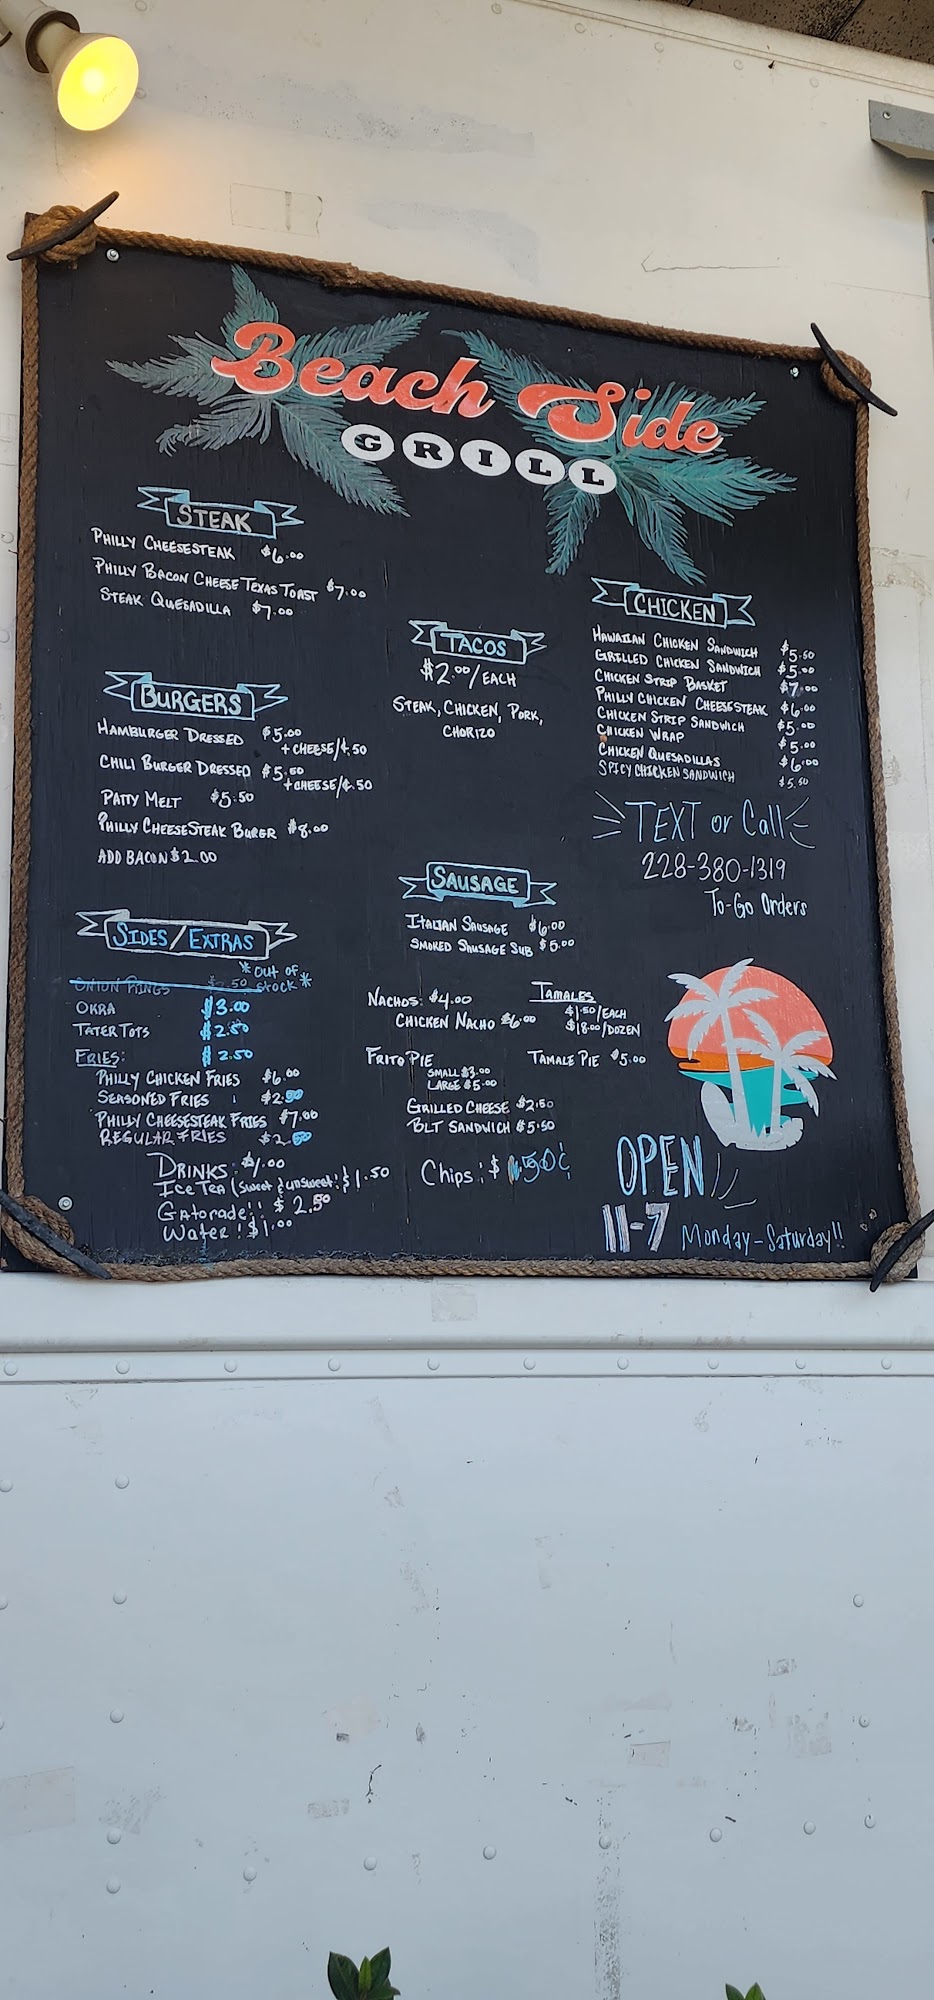 Beach Side
GRILL
STEAK
PHILLY CHEESESTEAK $6.00
PHILLY BACON CHEESE TEXAS TOAST $7.00
STEAK QUESADILLA $7.00
BURGERS
HAMBURGER DRESSED $5.00
+ CHEESE/¢.50
CHILI BURGER DRESSED $5.50
+ CHEESE/¢.50
PATTY MELT $5.50
PHILLY CHEESESTEAK BURGER $8.00
ADD BACON $2.00
TACOS
$2.00/EACH
STEAK, CHICKEN, PORK,
CHORIZO
CHICKEN
HAWAIIAN CHICKEN SANDWICH $5.50
GRILLED CHICKEN SANDWICH $5.00
CHICKEN STRIP BASKET $7.00
PHILLY CHICKEN CHEESESTEAK $6.00
CHICKEN STRIP SANDWICH $5.00
CHICKEN WRAP $5.00
CHICKEN QUESADILLAS $6.00
SPICY CHICKEN SANDWICH $5.50
TEXT or Call
228-380-1319
To-Go Orders
SAUSAGE
ITALIAN SAUSAGE $6.00
SMOKED SAUSAGE SUB $5.00
SIDES/EXTRAS
ONION RINGS .50 *OUT OF STOCK*
OKRA $3.00
TATER TOTS $2.50
FRIES: $2.50
PHILLY CHICKEN FRIES $6.00
SEASONED FRIES $2.50
PHILLY CHEESESTEAK FRIES $7.00
REGULAR FRIES $2.50
NACHOS: $4.00
CHICKEN NACHO $6.00
TAMALES
$1.50/EACH
$18.00/DOZEN
FRITO PIE
SMALL $3.00
LARGE $5.00
TAMALE PIE $5.00
GRILLED CHEESE $2.50
BLT SANDWICH $5.50
DRINKS: $1.00
Ice Tea (sweet & unsweet! $1.50
Gatorade!! $2.50
Water! $1.00
Chips: $ .50¢
OPEN
11-7 Monday-Saturday!!